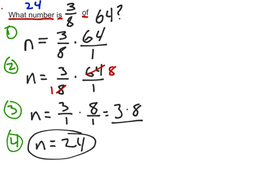 24
What number is 3/8 of 64?
1) n = 3/8 · 64/1
2) n = 3/8 · 64/1 8
1
3) n = 3/1 · 8/1 = 3·8
4) n = 24